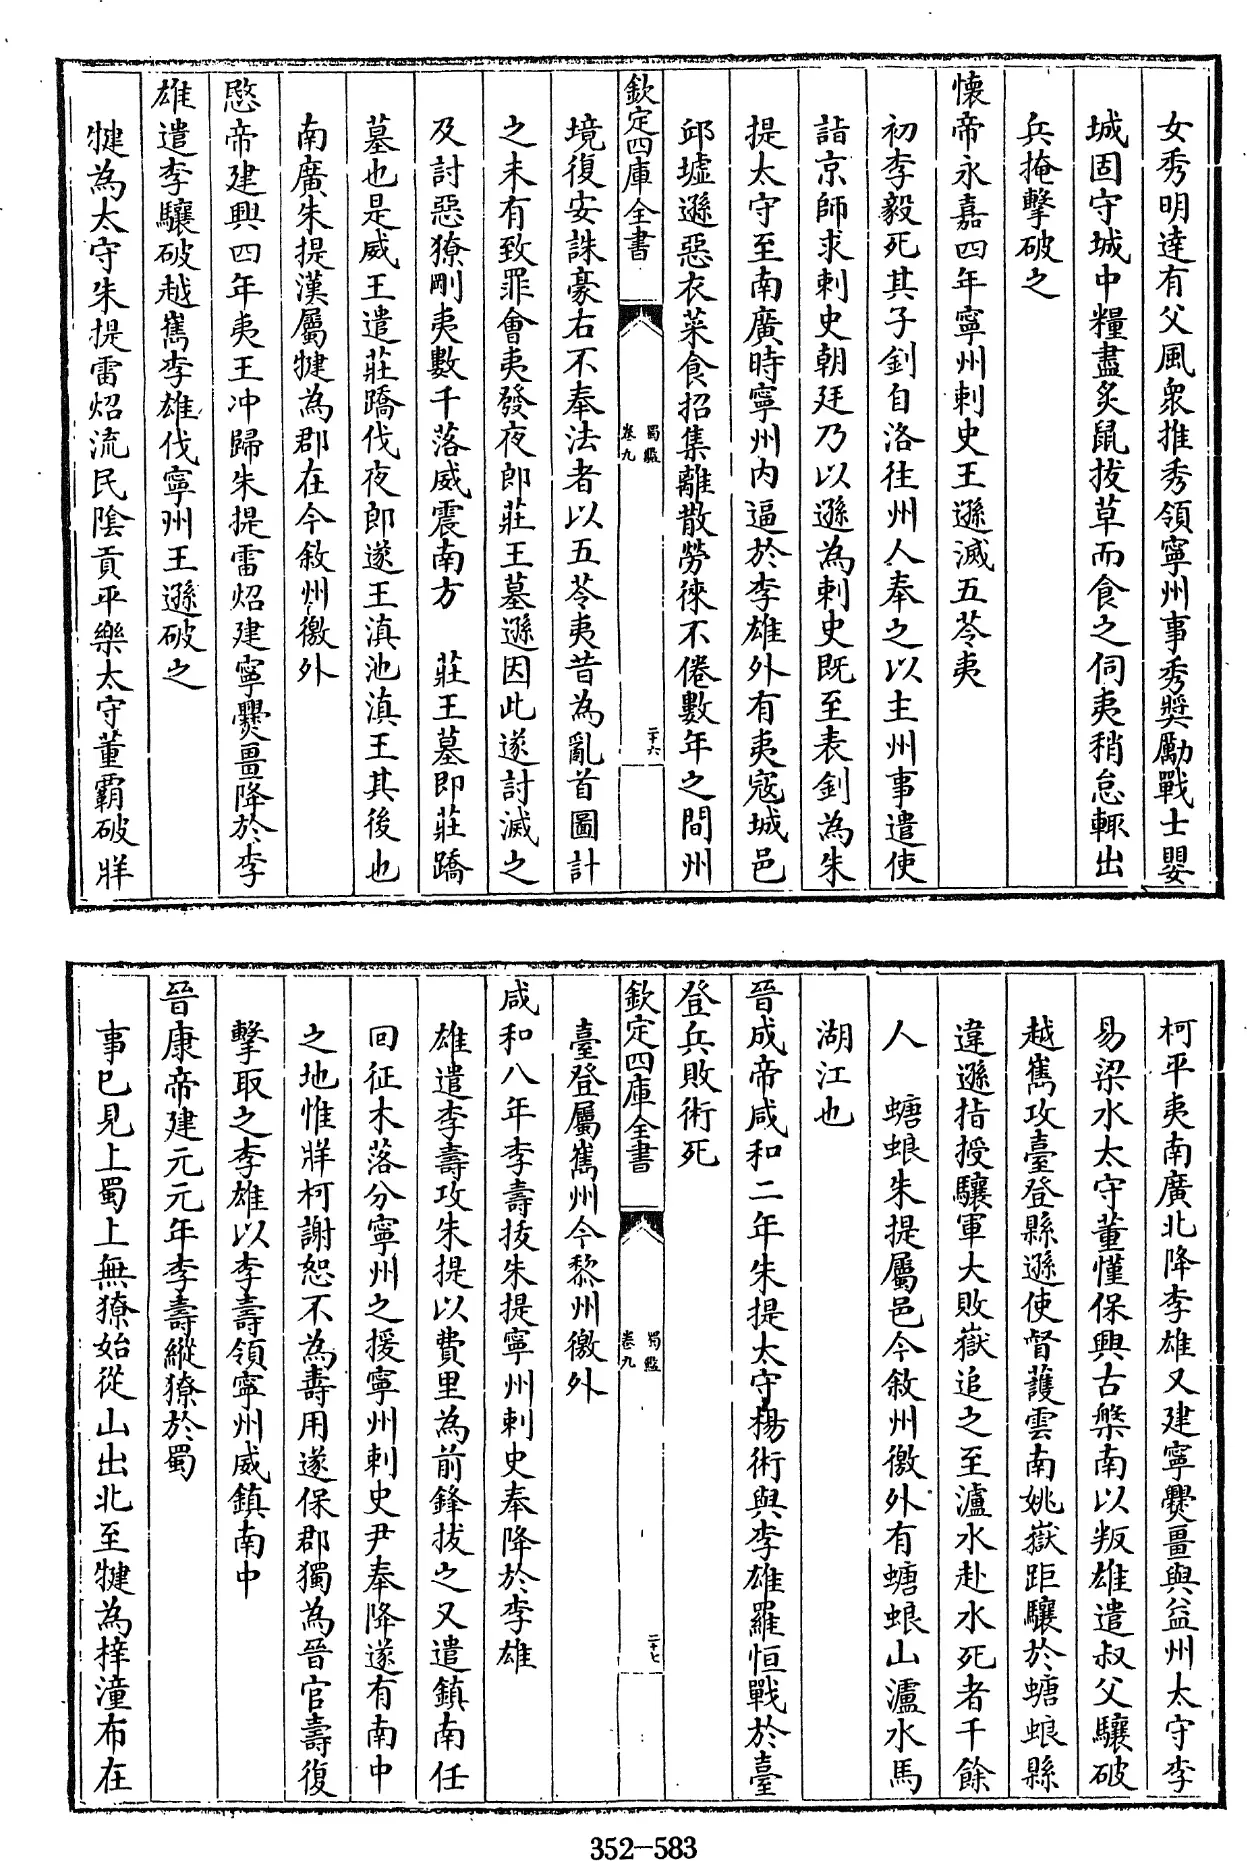 女秀明達有父風衆推秀領寧州事秀奬勵戰士嬰
城固守城中糧盡炙鼠拔草而食之伺夷稍怠輙出
兵掩擊破之
懐帝永嘉四年寧州刺史王遜滅五苓夷
初李毅死其子釗自洛往州人奉之以主州事遣使
詣京師求刺史朝廷乃以遜為刺史既至表釗為朱
提太守至南廣時寧州内逼於李雄外有夷寇城邑
邱墟遜惡衣菜食招集離散勞徠不倦數年之間州
欽定四庫全書
蜀鑑
卷九
二十六
境復安誅豪右不奉法者以五苓夷昔為亂首圖計
之未有致罪會夷發夜郎莊王墓遜因此遂討滅之
及討惡獠剛夷數千落威震南方 莊王墓即莊蹻
墓也是威王遣莊蹻伐夜郎遂王滇池滇王其後也
南廣朱提漢屬犍為郡在今敘州徼外
愍帝建興四年夷王冲歸朱提雷炤建寧爨畺降於李
雄遣李驤破越嶲李雄伐寧州王遜破之
犍為太守朱提雷炤流民隂貢平樂太守董霸破牂
柯平夷南廣北降李雄又建寧爨畺與益州太守李
易梁水太守董慬保興古槃南以叛雄遣叔父驤破
越嶲攻臺登縣遜使督䕶雲南姚嶽距驤於螗蜋縣
違遜指授驤軍大敗嶽追之至瀘水赴水死者千餘
人 螗蜋朱提屬邑今敘州徼外有螗蜋山瀘水馬
湖江也
晉成帝咸和二年朱提太守楊術與李雄羅恒戰於臺
登兵敗術死
欽定四庫全書
蜀鑑
卷九
二十七
臺登屬嶲州今黎州徼外
咸和八年李壽拔朱提寧州刺史奉降於李雄
雄遣李壽攻朱提以費里為前鋒拔之又遣鎮南任
回征木落分寧州之援寧州刺史尹奉降遂有南中
之地惟牂柯謝恕不為壽用遂保郡獨為晉官壽復
擊取之李雄以李壽領寧州威鎮南中
晉康帝建元元年李壽縱獠於蜀
事已見上蜀上無獠始從山出北至犍為梓潼布在
352-583